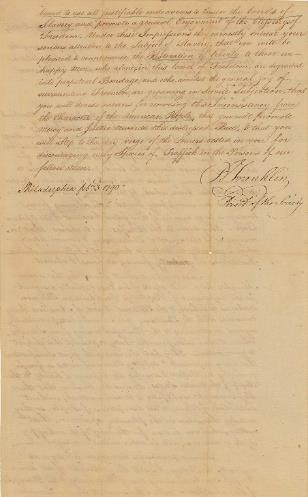 bound to use all justifiable endeavours to loosen the bands of
Slavery and promote a general Enjoyment of the blessings of
Freedom. Under these Impressions they earnestly intreat your
serious attention to the Subject of Slavery, that you will be
pleased to countenance the Restoration of liberty to those un-
happy Men, who alone, in this land of Freedom, are degraded
into perpetual Bondage, and who, amidst the general Joy of
surrounding Freemen, are groaning in Servile Subjection, that
you will devise means for removing this Inconsistency from
the Character of the American People, that you will promote
Mercy and Justice towards this distressed Race, & that you
will Step to the very verge of the Powers vested in you for
discouraging every Species of Traffick in the Persons of our
fellow Men.
Philadelphia Feby 3. 1790
B Franklin
Presidt. of the Society